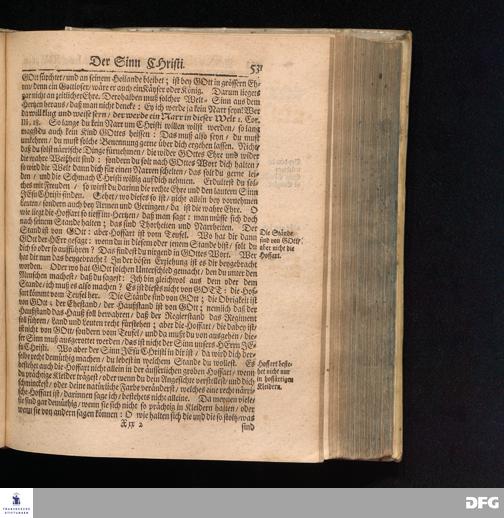 Der Sinn CHristi. 531
GOtt fürchtet/ und an seinem Heilande bleibet; ist bey GOtt in grössern Eh-
ren/ denn ein Gottloser/ wäre er auch ein Käyser oder König. Darum lieget
gar nicht an zeitlicher Ehre. Derohalben muß solcher Welt-Sinn aus dem
Hertzen heraus/ daß man nicht dencke: Ey ich werde ja kein Narr seyn! Wer
da will klug und weise seyn/ der werde ein Narr in dieser Welt 1. Cor.
III, 18. So lange du kein Narr um Christi willen wilst werden/ so lang
magst du auch kein Kind GOttes heissen: Das muß also seyn/ du must
umkehren/ du must solche Benennung gerne über dich ergehen lassen. Nicht/
daß du solst närrische Dinge fürnehmen/ die wider GOttes Ehre und wider
die wahre Weißheit sind: sondern du solt nach GOttes Wort dich halten/
so wird die Welt dann dich für einen Narren schelten/ das solt du gerne lei-
den/ und die Schmach Christi willig auf dich nehmen. Erdultest du sol-
ches mit Freuden/ so wirst du darinn die rechte Ehre und den lautern Sinn
JEsu Christi finden. Sehet/ wo dieses so ist/ nicht allein bey vornehmen
Leuten/ sondern auch bey Armen und Geringen/ da ist die wahre Ehre. O
wie liegt die Hoffart so tieff im Hertzen/ daß man sagt: man müsse sich doch
nach seinem Stande halten; das sind Thorheiten und Narrheiten. Der
Stand ist von GOtt: aber Hoffart ist vom Teufel. Wo hat dir dann
GOtt der HErr gesagt: wenn du in diesem oder jenem Stande bist/ solt du
dich so oder so aufführen? Das findest du nirgend in GOttes Wort. Wer
hat dir nun das beygebracht? In der bösen Erziehung ist es dir beygebracht
worden. Oder wo hat GOtt solchen Unterschied gemacht/ den du unter den
Menschen machest/ daß du sagest: Ich bin gleichwol aus dem oder dem
Stande/ ich muß es also machen? Es ist dieses nicht von GOTT: die Hof-
fart kömmt vom Teufel her. Die Stände sind von GOtt; die Obrigkeit ist
von GOtt; der Ehestand/ der Haußstand ist von GOtt; nemlich daß der
Haußstand das Hauß soll bewahren/ daß der Regierstand das Regiment
soll führen/ Land und Leuten recht fürstehen; aber die Hoffart/ die dabey ist/
ist nicht von GOtt/ sondern vom Teufel/ und da must du von ausgehen/ die-
ser Sinn muß ausgerottet werden/ das ist nicht der Sinn unsers HErrn JE-
su Christi. Wo aber der Sinn JEsu Christi in dir ist/ da wird dich der-
selbe recht demüthig machen/ du lebest in welchem Stande du wollest. Es
bestehet auch die Hoffart nicht allein in der äusserlichen groben Hoffart/ wenn
du prächtige Kleider trägest/ oder wenn du dein Angesichte verstellest/ und dich
schminckest/ oder deine natürliche Farbe veränderst/ welches eine recht närri-
sche Hoffart ist/ darinnen sage ich/ bestehets nicht alleine. Da meynen viele/
sie sind gar demüthig/ wenn sie sich nicht so prächtig in Kleidern halten/ oder
wenn sie von andern sagen können: O wie halten sich die und die so stoltz/ was
Xxx 2 sind
Die Stände
sind von GOtt/
aber nicht die
Hoffart.
Hoffart beste-
het nicht nur
in hoffärtigen
Kleidern.
FRANCKESCHE
STIFTUNGEN
DFG